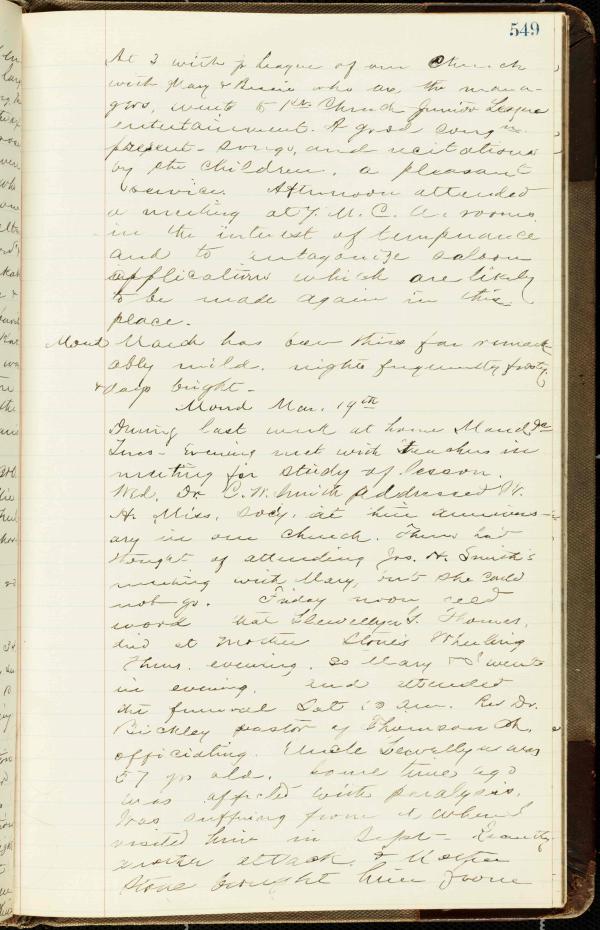 549
At 3 with jr League of our Church
with Mary & Bessie who are the mana-
gers, went to 1st Church Junior League
entertainment. A good cong'n
present - songs, and recitations
by the children, a pleasant
service. Afternoon attended
a meeting at Y. M. C. A. rooms
in the interest of temperance
and to antagonize saloon
applications which are likely
to be made again in this
place.
Mond March has been thus far remark
ably mild. nights frequently frosty
& days bright -
Mond Mar. 19th
During last week at home Mond &
Tues - Evening met with teachers in
meeting for study of lesson.
Wed. Dr. C. W. Smith addressed W.
H. Miss. Socy. at their annivers-
ary in our Church. Thurs had
thought of attending Jos. H. Smith's
meeting with Mary, but she could
not go. Friday noon recd
word that Llewellyn Y. Homes,
died at Mother Stone's Wheeling
Thurs. evening. So Mary & I went
in evening. and attended
the funeral Sat 10 am. Rev Dr.
Bickley pastor of Thomson Ch.
officiating. Uncle Lewellyn was
57 yrs old. Some time ago
was affected with paralysis.
Was suffering from it when I
visited him in Sept - Recently
another attack, & Mother
Stone brought him from